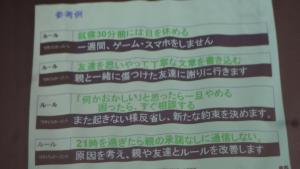 参考例
ルール
就寝30分前には目を休める
一週間、ゲーム・スマホをしません
ルール
友達を思いやって丁寧な文章を書き込む
親と一緒に傷つけた友達に謝りに行きます
ルール
「何かおかしい」と思ったら一旦やめる
困ったら、すぐ相談する
また起きない様反省し、新たな約束を決めます。
ルール
21時を過ぎたら親の承諾なしに通信しない。
原因を考え、親や友達とルールを改善します